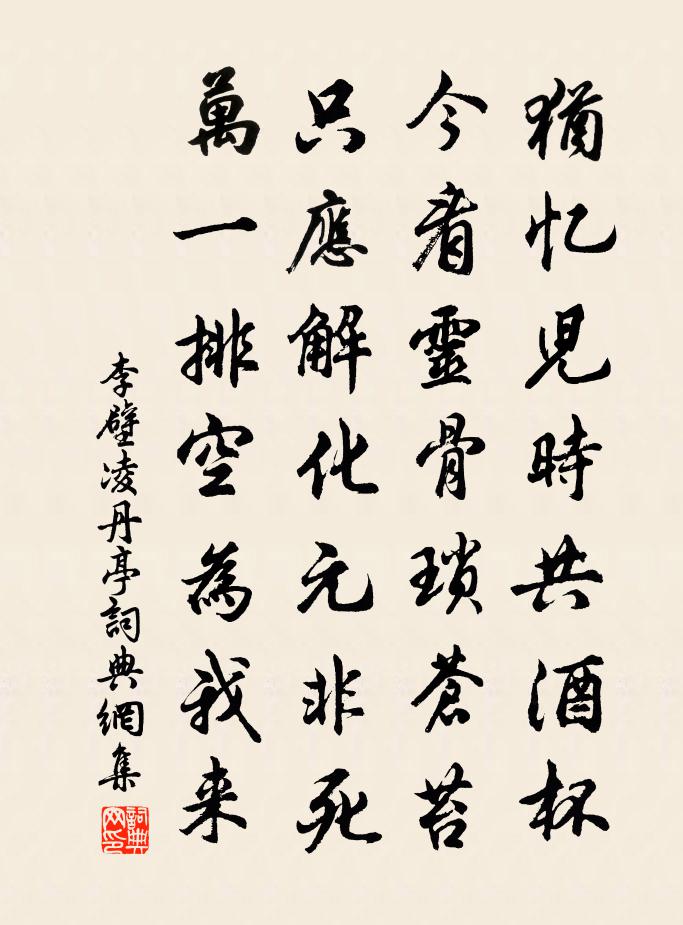 猶忆児時共酒杯
今看靈骨瑣蒼苔
只應解化元非死
萬一排空為我来
李壁凌丹亭詞典網集
詞典
网印